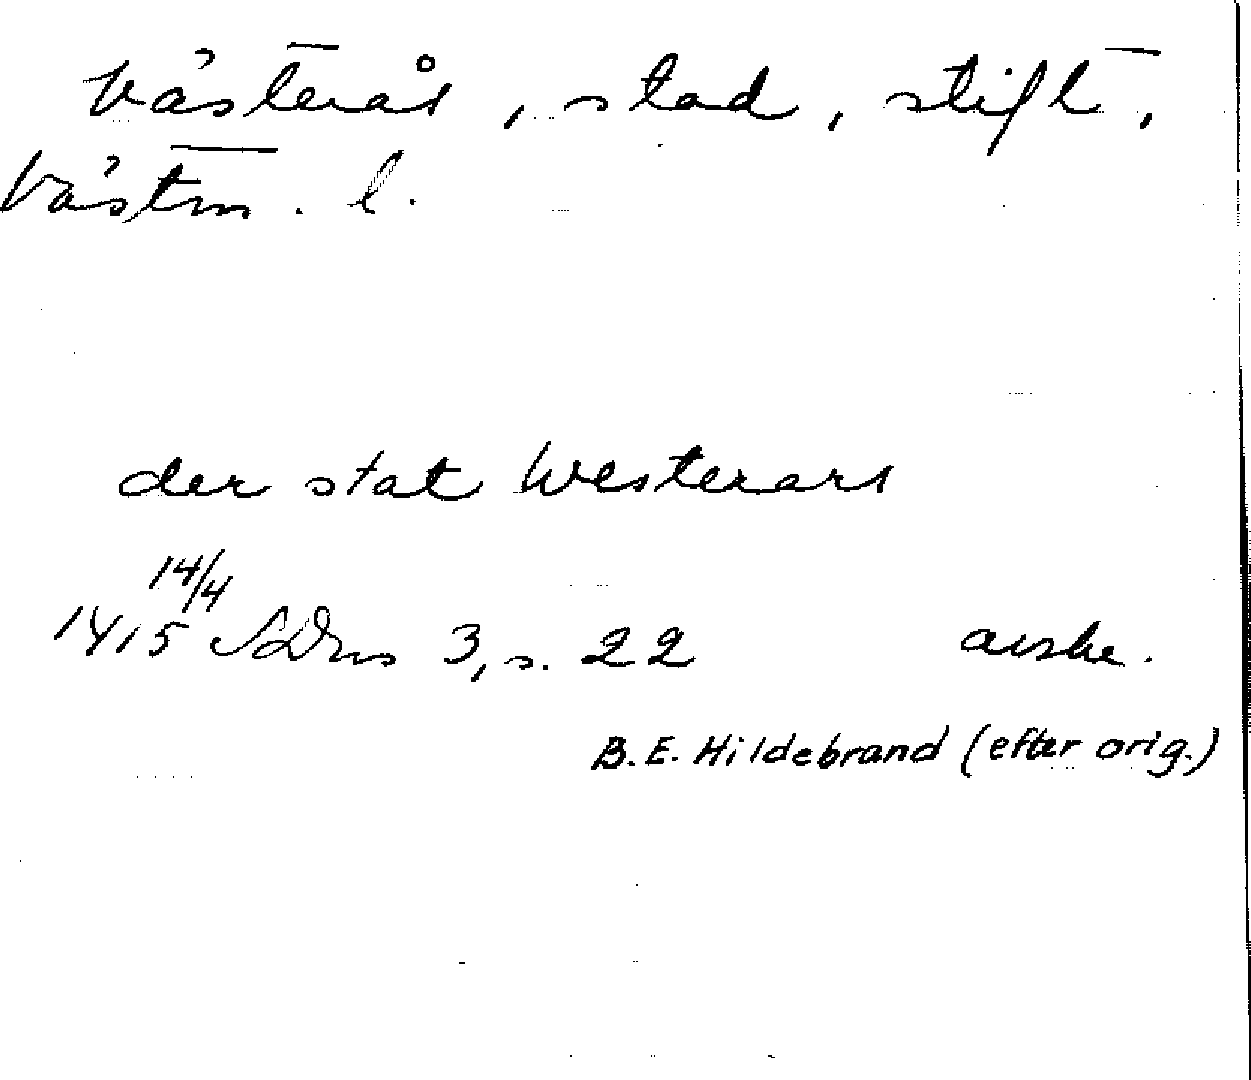 Västerås, stad, stift,
Västm. l.
der stat Westerars
14/4
1415 SDns 3, s. 22 avskr.
B.E. Hildebrand (efter orig.)